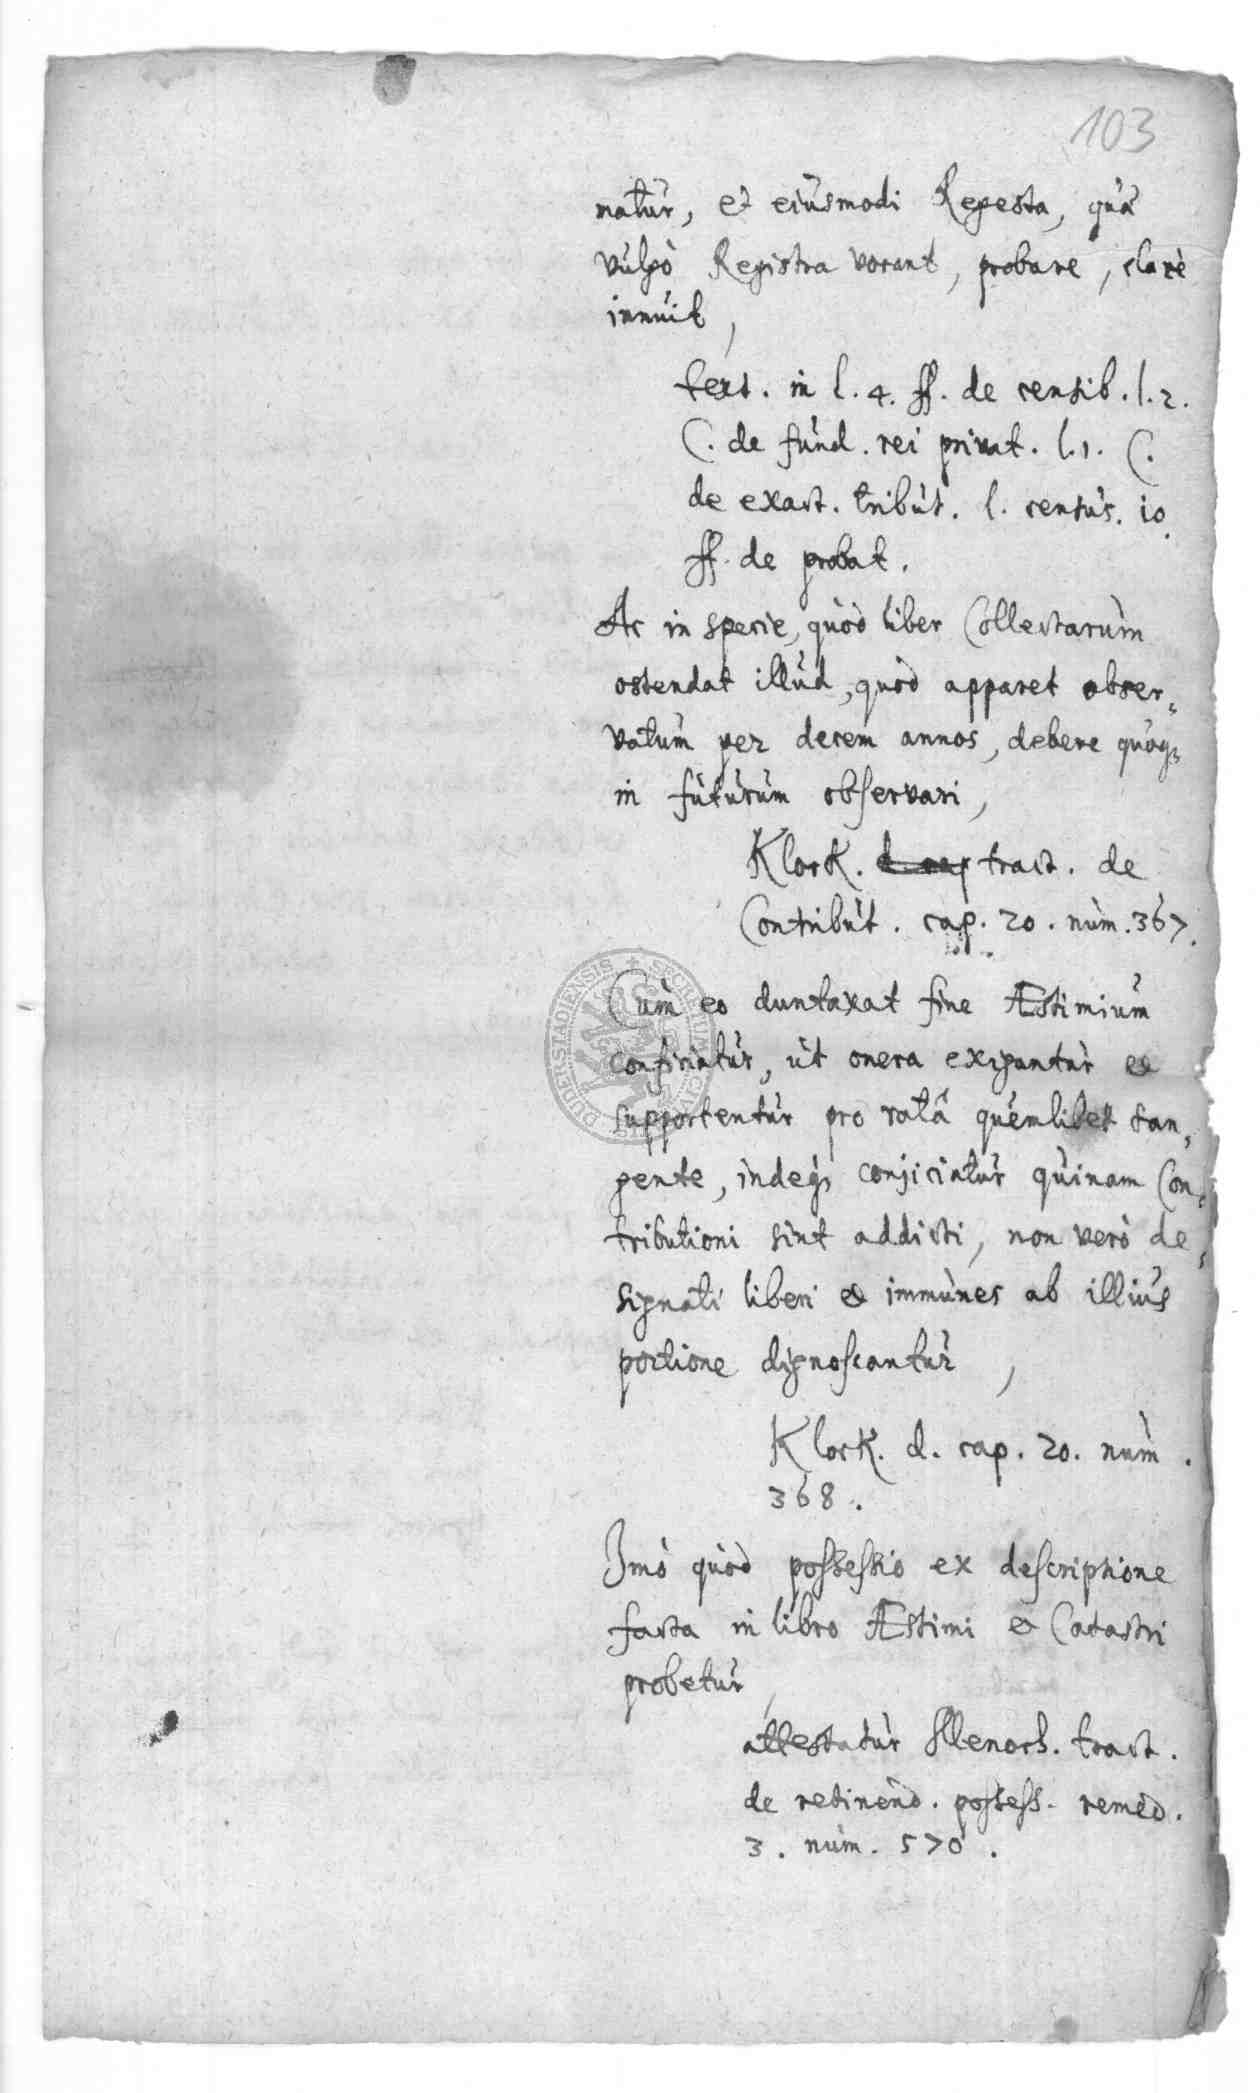 103
natur, et eiusmodi Regesta, quâ
vulgò Registra vocant, probare, clarè
innuit,
text. in l. 4. ff. de censib. l. 2.
C. de fund. rei privat. l. 1. C.
de exact. tribut. l. census. 10.
ff. de probat.
Ac in specie, quòd liber Collectarum
ostendat illud, quòd apparet obser,
vatum per decem annos, debere quoq3
in futurum observari,
Klock. d. cap tract. de
Contribut. cap. 20. num. 367.
Cum eo duntaxat fine Æstimium
conficiatur, ut onera exigantur &
supportentur pro ratâ quemlibet tan,
gente, indeq3 conjiciatur quinam Con,
tributioni sint addicti, non verò de,
signati liberi & immunes ab illius
portione dignoscantur,
Klock. d. cap. 20. num.
368.
Imò quòd possessio ex descriptione
facta in libro Æstimi & Catastri
probetur,
attestatur Menoch. tract.
de retinend. possess. remed.
3. num. 570.
SECRETUM CIVI DUDERSTADIENSIS